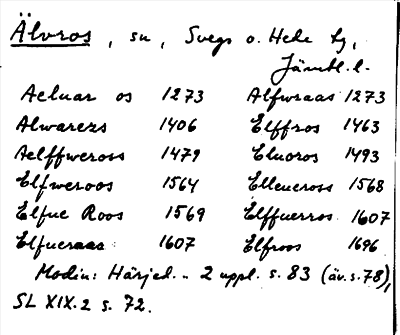 Älvros, sn, Svegs o. Hede tg,
Jämtl. l.
Aeluar os 1273 Alfwraas 1273
Alwarezs 1406 Elffros 1463
Aelffweross 1479 Eluoros 1493
Elfweroos 1564 Elleueross 1568
Elfue Roos 1569 Elffuerros 1607
Elfueraas 1607 Elfroos 1696
Modin: Härjed. .. 2 uppl. s. 83 (äv. s. 78),
SL XIX.2 s. 72.